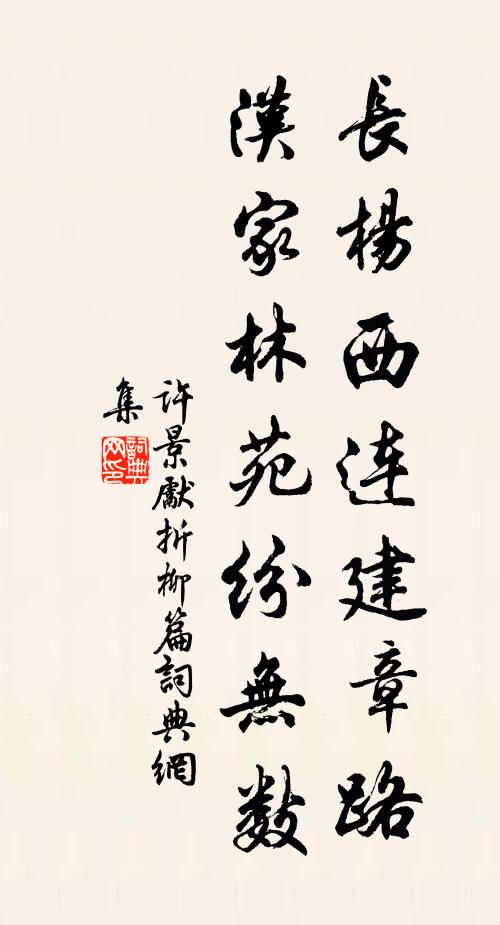 長楊西連建章路
漢家林苑紛無數
許景獻折柳篇詞典網
集
詞典網印